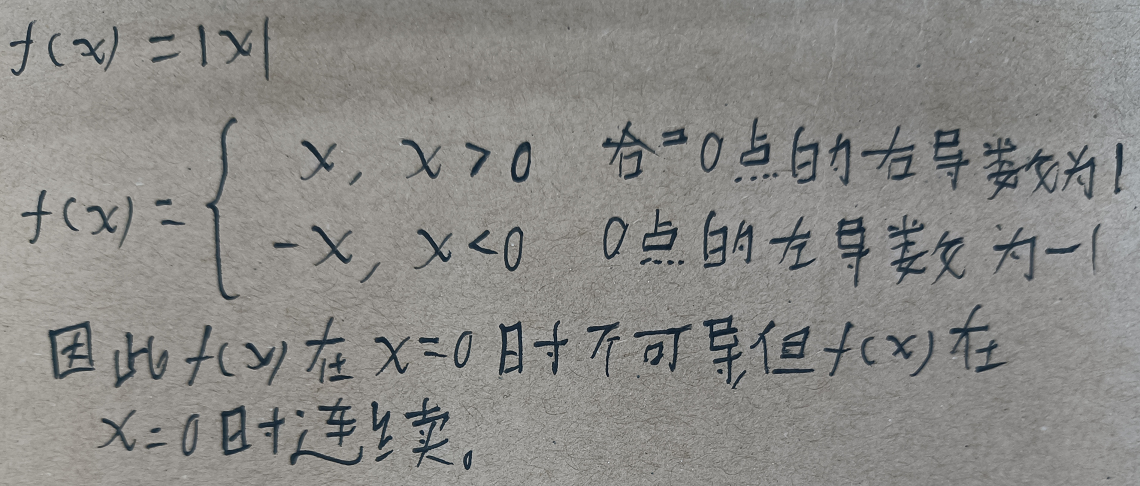 f(x) = |x|
f(x) = { x, x > 0 0点的右导数为1
-x, x < 0 0点的左导数为-1
因此f(x)在x=0时不可导,但f(x)在
x=0时连续。